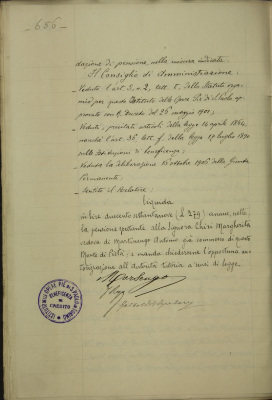 - 656 -
dazione di pensione, nella misura indicata.
Il Consiglio di Amministrazione:
- Veduto l'art. 3, n. 2, lett. f, dello Statuto orga-
nico per questo Istituto delle Opere Pie di S. Paolo ap-
provato con R. Decreto del 26 maggio 1901,
- Veduti i precitati articoli della legge 14 aprile 1864,
nonché l'art. 36 lett. f della legge 17 luglio 1890
sulle Istituzioni di beneficenza;
- Veduta la deliberazione 16 ottobre 1906 della Giunta
Permanente;
- Sentito il Relatore;
Liquida
in lire duecento settantanove (L. 279) annue, nette,
la pensione spettante alla Signora Chiri Margherita
vedova di Martinengo Antonio già commesso di questo
Monte di Pietà; e manda chiedersene l'opportuna au-
torizzazione all'Autorità tutoria a mensi di legge.
OPERE PIE DI S. PAOLO
BENEFICENZA
CREDITO